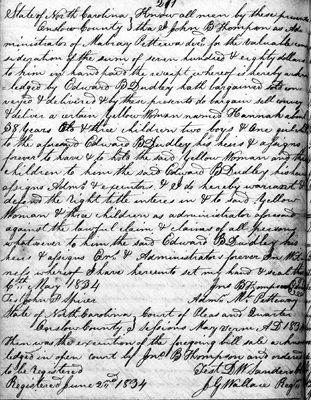 211
State of North Carolina Know all men by these presents
Onslow County that I John B Thompson as Ad-
ministrator of Mabray Pettiway decd for the valuable con
sideration of the sum of seven hundred & eighty dollars
to him in hand paid the receipt whereof is hereby acknow
ledged by Edward B Dudley hath bargained sold con
veyed & delivered & by these presents do bargain sell convey
& deliver a certain Yellow Woman named Hannah about
38 Years Old & three children two boys & One girl
to the aforesaid Edward B Dudley his heirs & assigns
forever to have & to hold the said Yellow Woman and three
children to him the said Edward B Dudley his heirs
assigns Admrs & executors & I do hereby warrant &
defend the right title interes in & to said Yellow
Woman & three children as administrator aforesaid
against the lawful claim & claims of all persons
whatsoever to him the said Edward B Dudley his
heirs & assigns Exrs & Administrators forever In Wit
ness whereof I have hereunto set my hand & seal this
6th May 1834 Jno B Thompson Seal
Test John P Spicer Admr M Pettiway
State of North Carolina Court of Pleas and Quarter
Onslow County Sessions May Term A D 1834
Then was the execution of the foregoing bill sale acknow
ledged in open court by Jno B Thompson and ordered
to be Registered Test D W Sanders
Registered June 25th 1834 J G Wallace Regtr